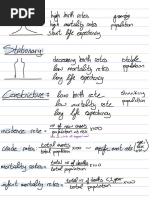 high birth rates
high mortality rates
short life expectancy
growing
population
Stationary:
decreasing birth rates
low mortality rates
long life expectancy
stable
population
Constrictive:
low birth rate
low mortality
long life expectancy
shrinking
population
incidence rate = no. of new cases / population at risk x100
crude rates = total events / total population x100
mortality rates = total no of deaths / total population x100
infant mortality rates = total no of deaths <1 year / total population x100